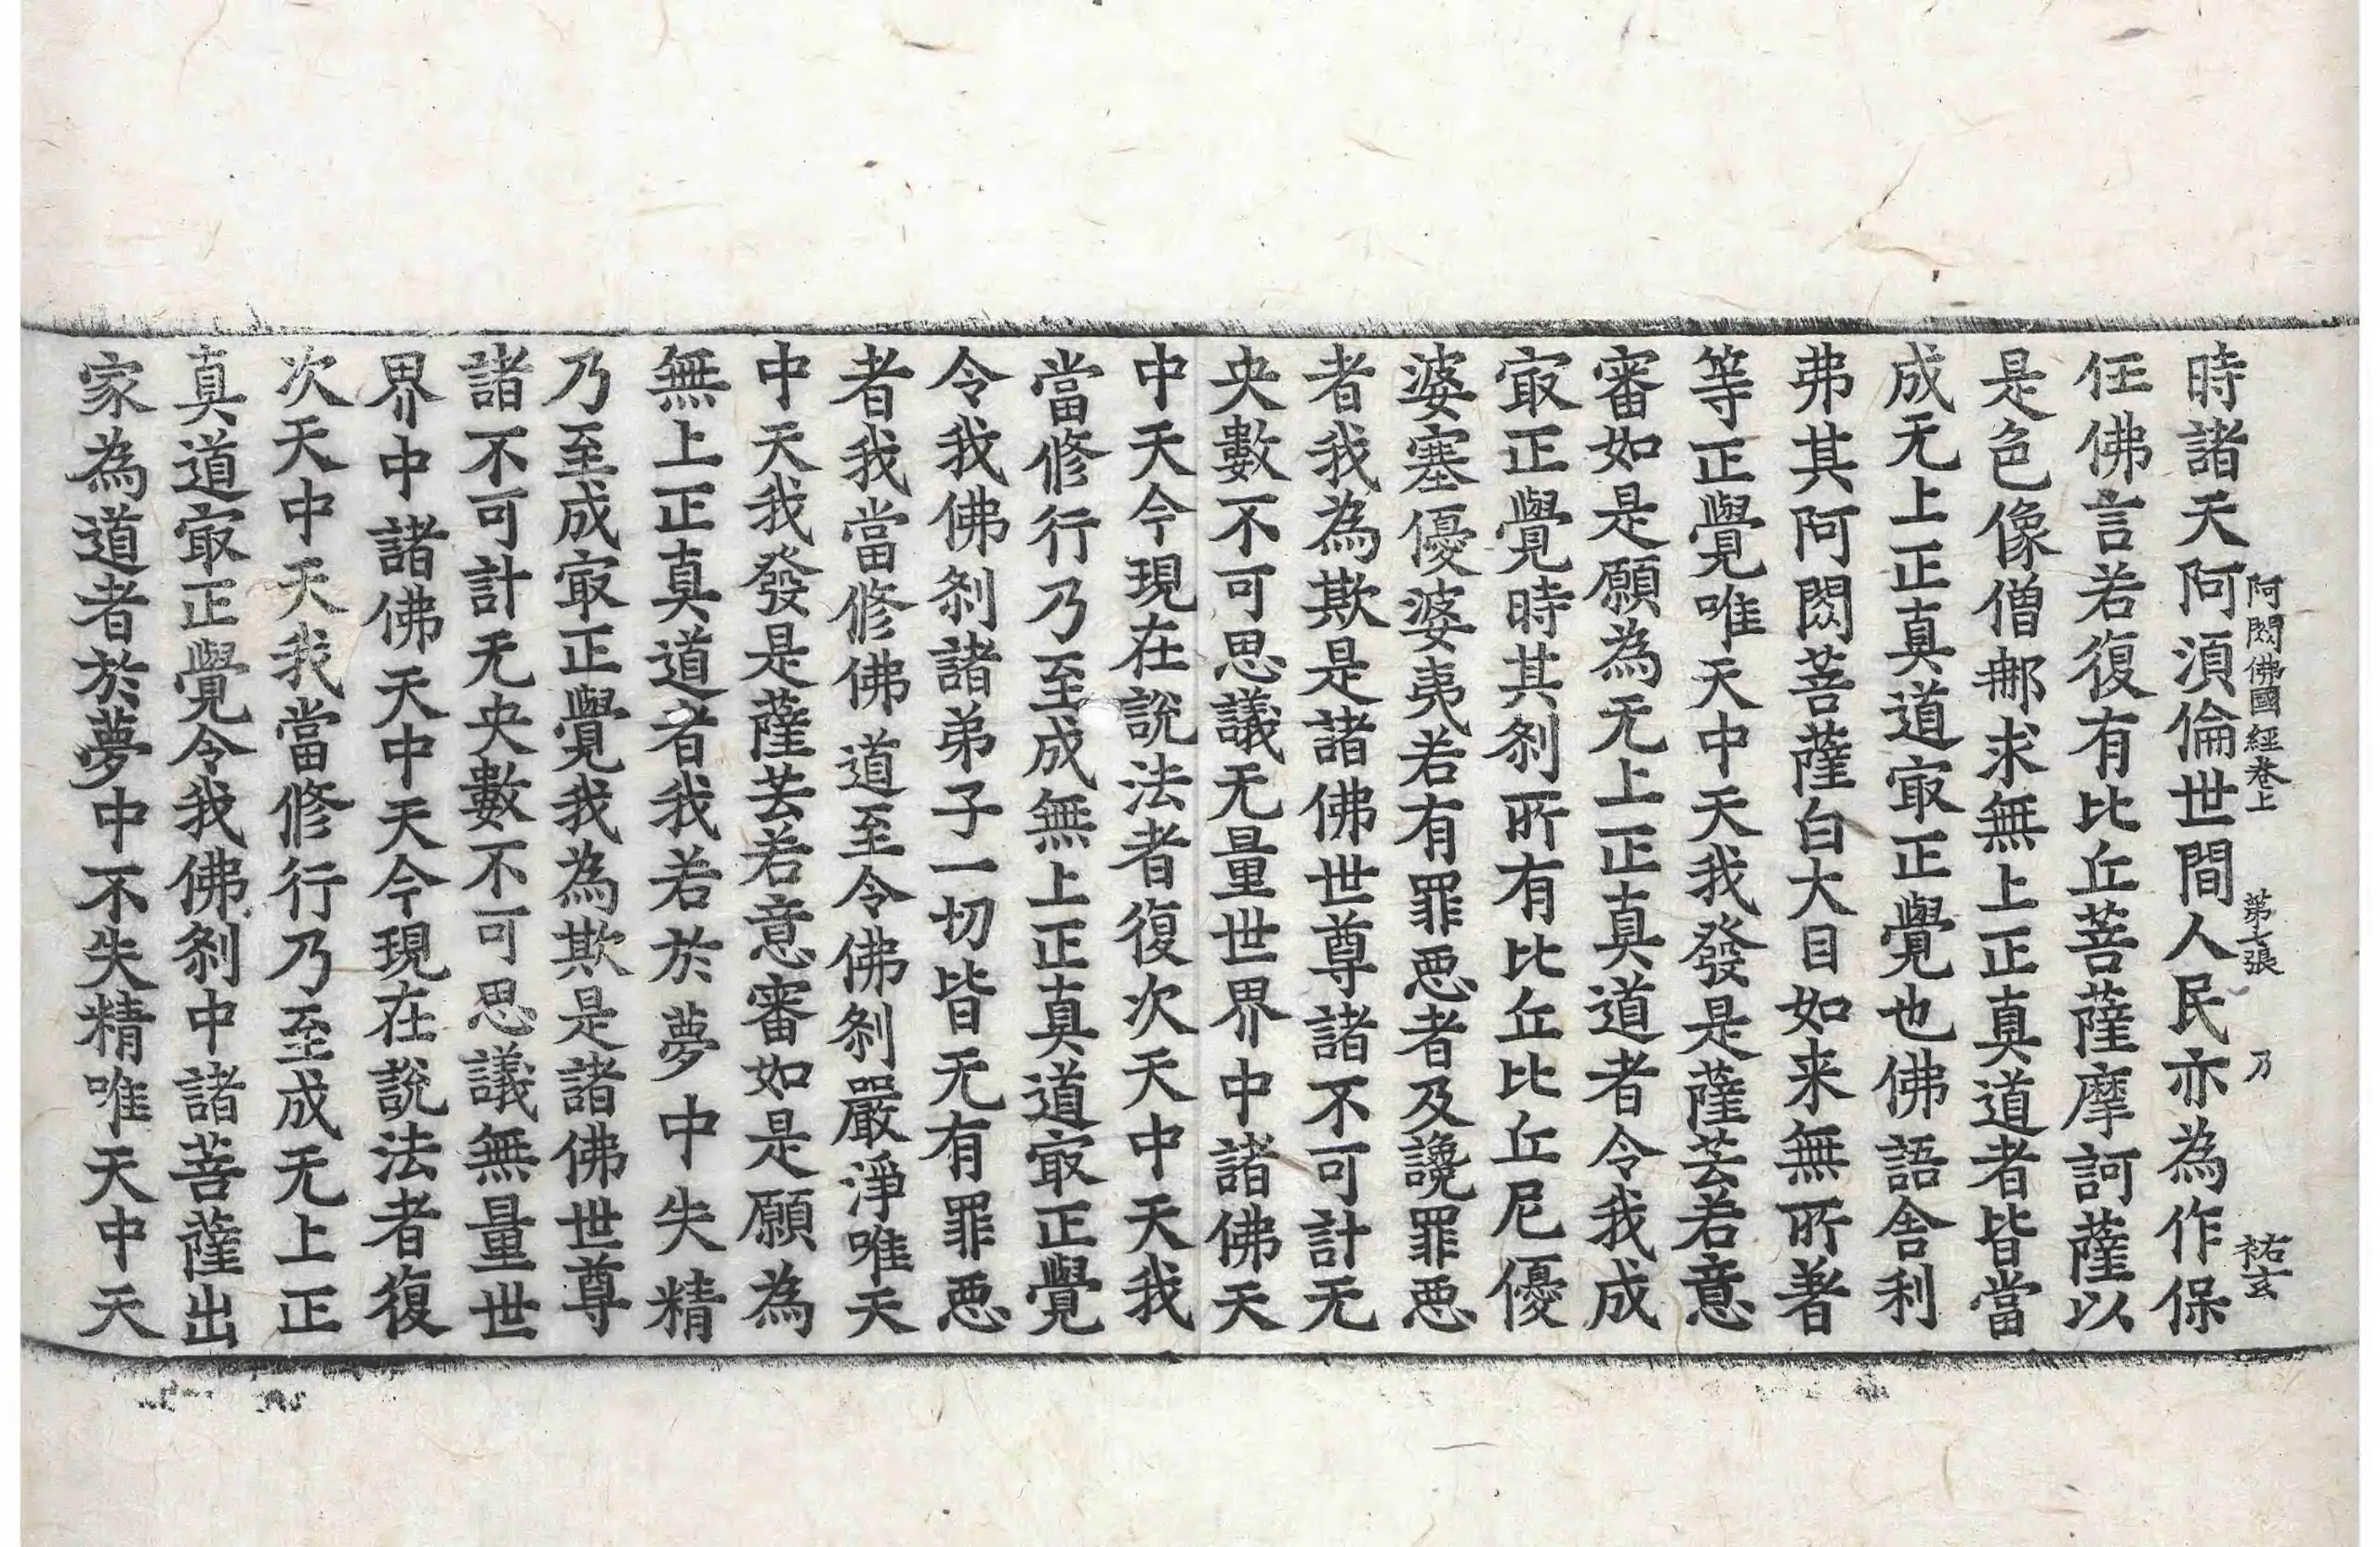 阿閦佛國經卷上　第七張　乃　祐玄
時諸天阿須倫世間人民亦為作保
任佛言若復有比丘菩薩摩訶薩以
是色像僧那求無上正真道者皆當
成无上正真道㝡正覺也佛語舍利
弗其阿閦菩薩白大目如来無所著
等正覺唯天中天我發是薩芸若意
審如是願為无上正真道者令我成
㝡正覺時其剎所有比丘比丘尼優
婆塞優婆夷若有罪惡者及讒罪惡
者我為欺是諸佛世尊諸不可計无
央數不可思議无量世界中諸佛天
中天今現在說法者復次天中天我
當修行乃至成無上正真道㝡正覺
令我佛剎諸弟子一切皆无有罪惡
者我當修佛道至令佛剎嚴淨唯天
中天我發是薩芸若意審如是願為
無上正真道者我若於夢中失精
乃至成㝡正覺我為欺是諸佛世尊
諸不可計无央數不可思議無量世
界中諸佛天中天今現在說法者復
次天中天我當修行乃至成无上正
真道㝡正覺令我佛剎中諸菩薩出
家為道者於夢中不失精唯天中天